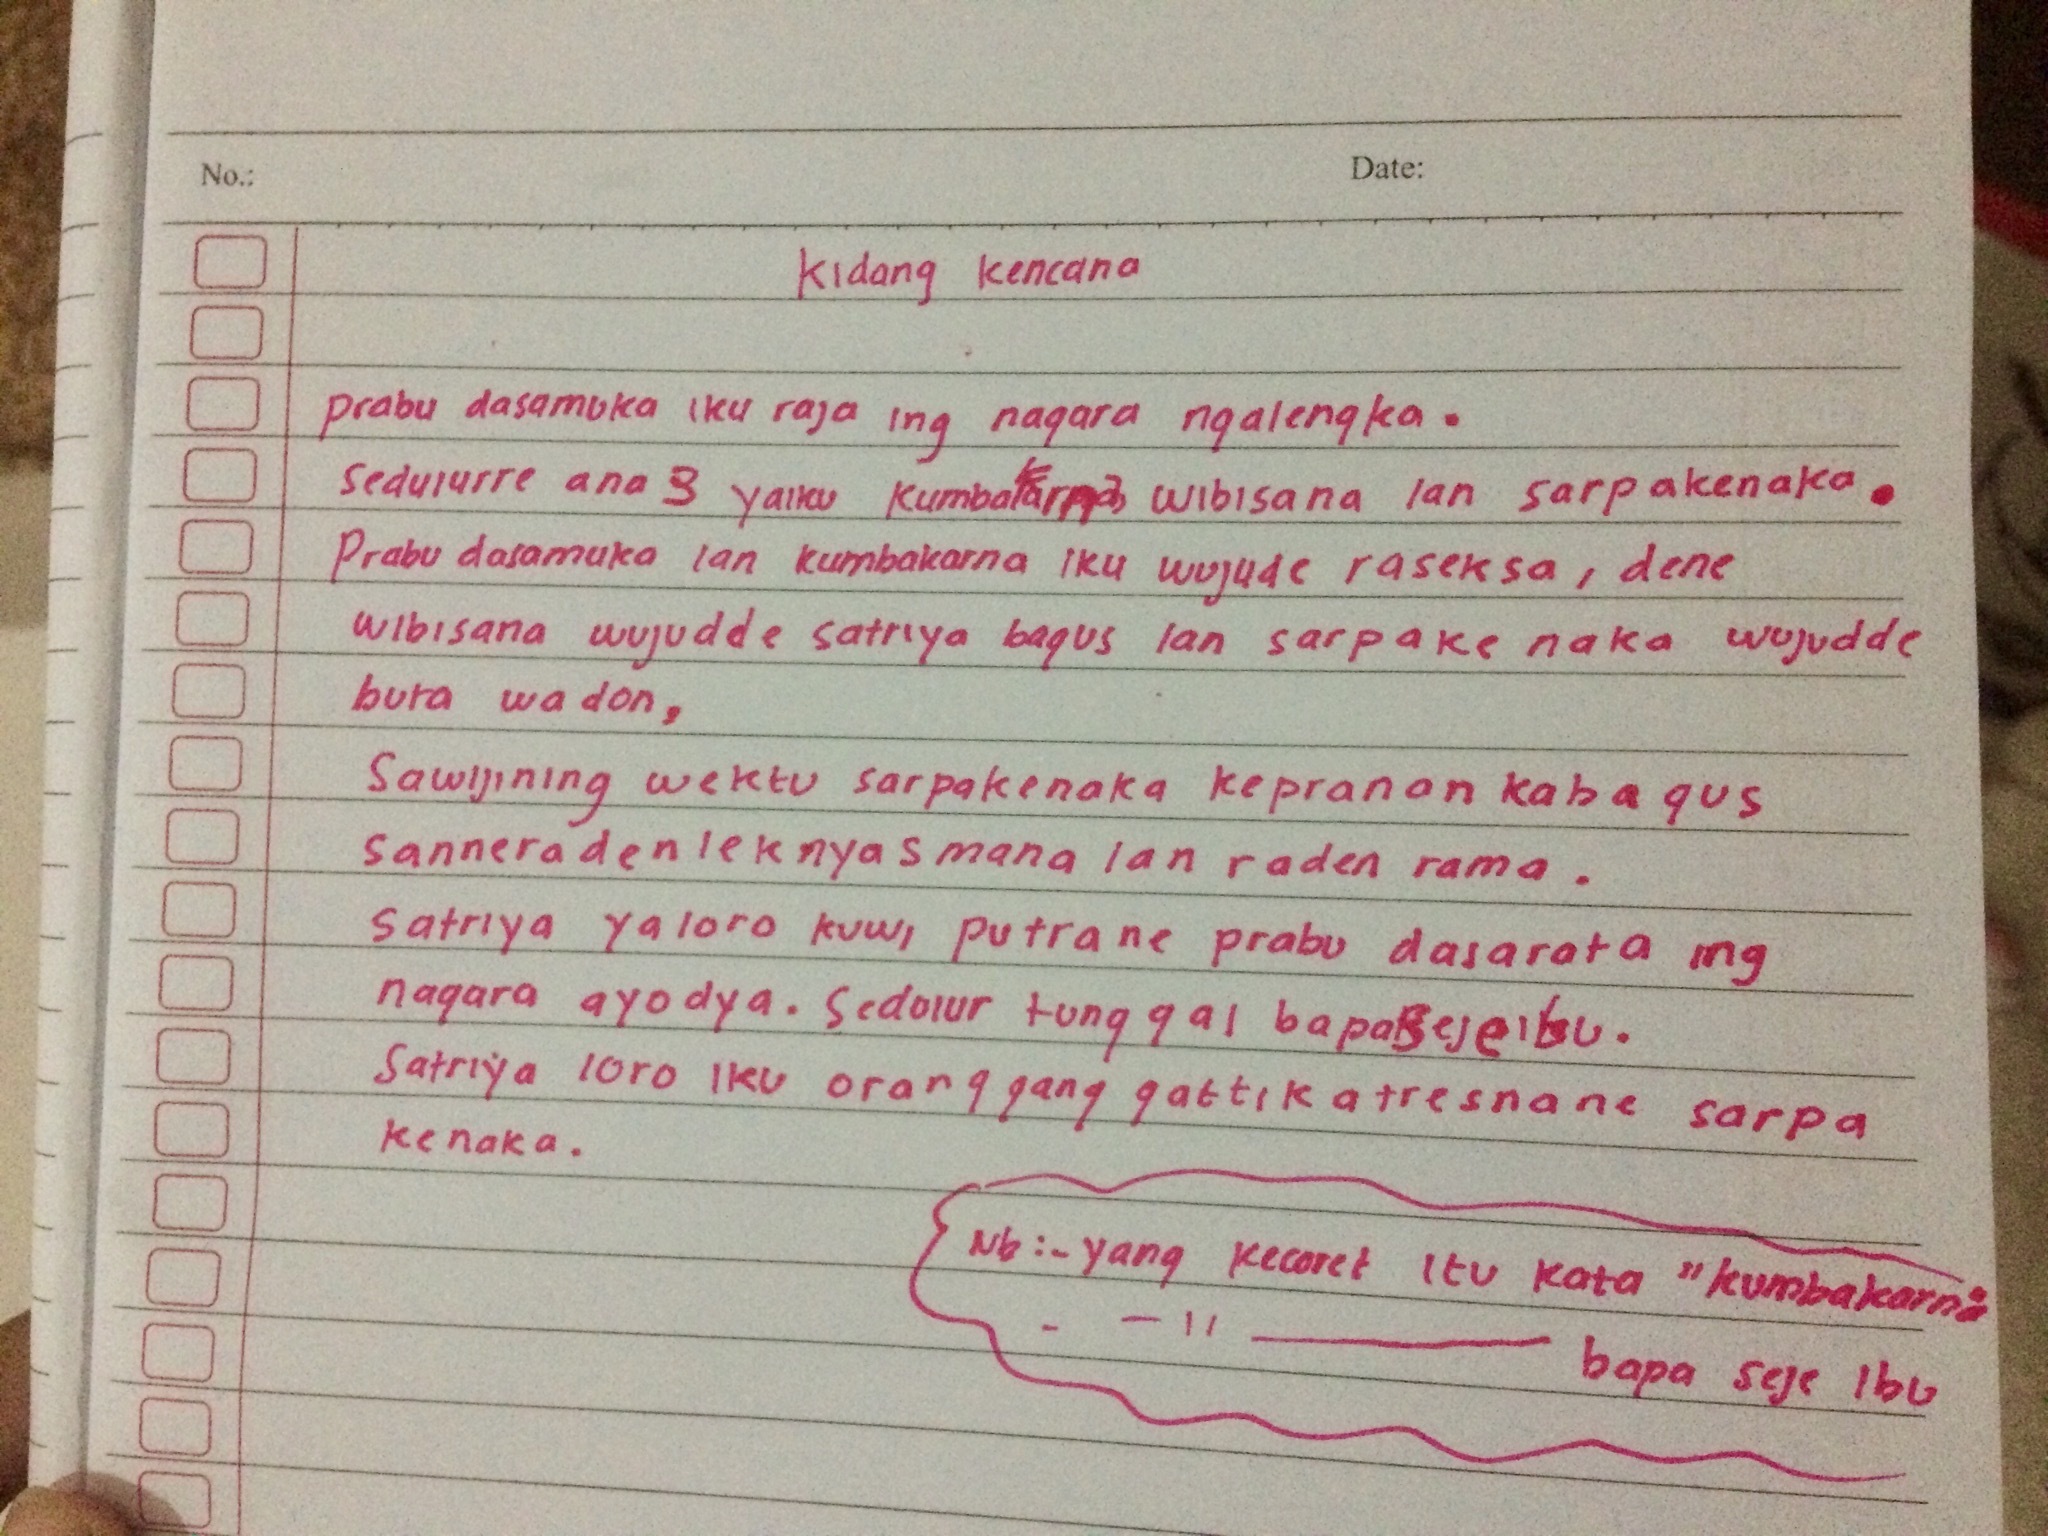 No.:
Date:
Kidang kencana
prabu dasamuka iku raja ing nagara ngalengka.
sedulurre ana 3 yaiku kumbakarna wibisana lan sarpakenaka.
Prabu dasamuka lan kumbakarna iku wujude raseksa, dene
wibisana wujudde satriya bagus lan sarpake naka wujudde
buta wadon,
Sawijining wektu sarpakenaka kepranan kabagus
sanneraden leknyasmana lan raden rama.
satriya yaloro kuwi putrane prabu dasarata ing
nagara ayodya. Sedolur tunggal bapa seje ibu.
Satriya loro iku orang gang gattikatresnane sarpa
kenaka.
Nb :- yang kecoret itu kata "kumbakarna
- — 11 ———— bapa seje ibu